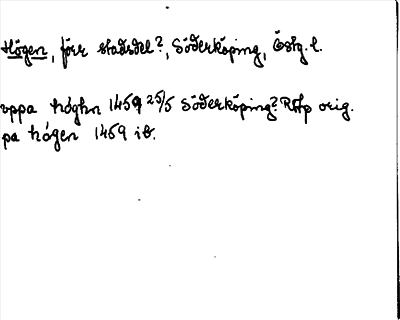 Högen, förr stadsdel?, Söderköping, Östg. l.
vppa höghn 1459 25/5 Söderköping? RAp orig.
pa högen 1459 ib.